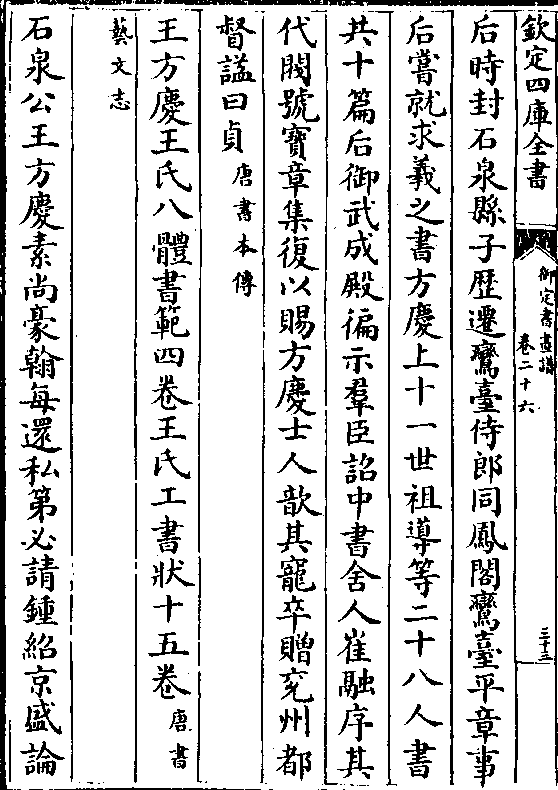 欽定四庫全書
御定書畫譜
卷二十六
三十三
后時封石泉縣子歴遷鸞臺侍郎同鳳閣鸞臺平章事
后嘗就求羲之書方慶上十一世祖導等二十八人書
共十篇后御武成殿徧示羣臣詔中書舍人崔融序其
代閥號寶章集復以賜方慶士人歆其寵卒贈兗州都
督謚曰貞唐書本傳
王方慶王氏八體書範四卷王氏工書狀十五卷唐書
藝文志
石泉公王方慶素尚豪翰每還私第必請鍾紹京盛論